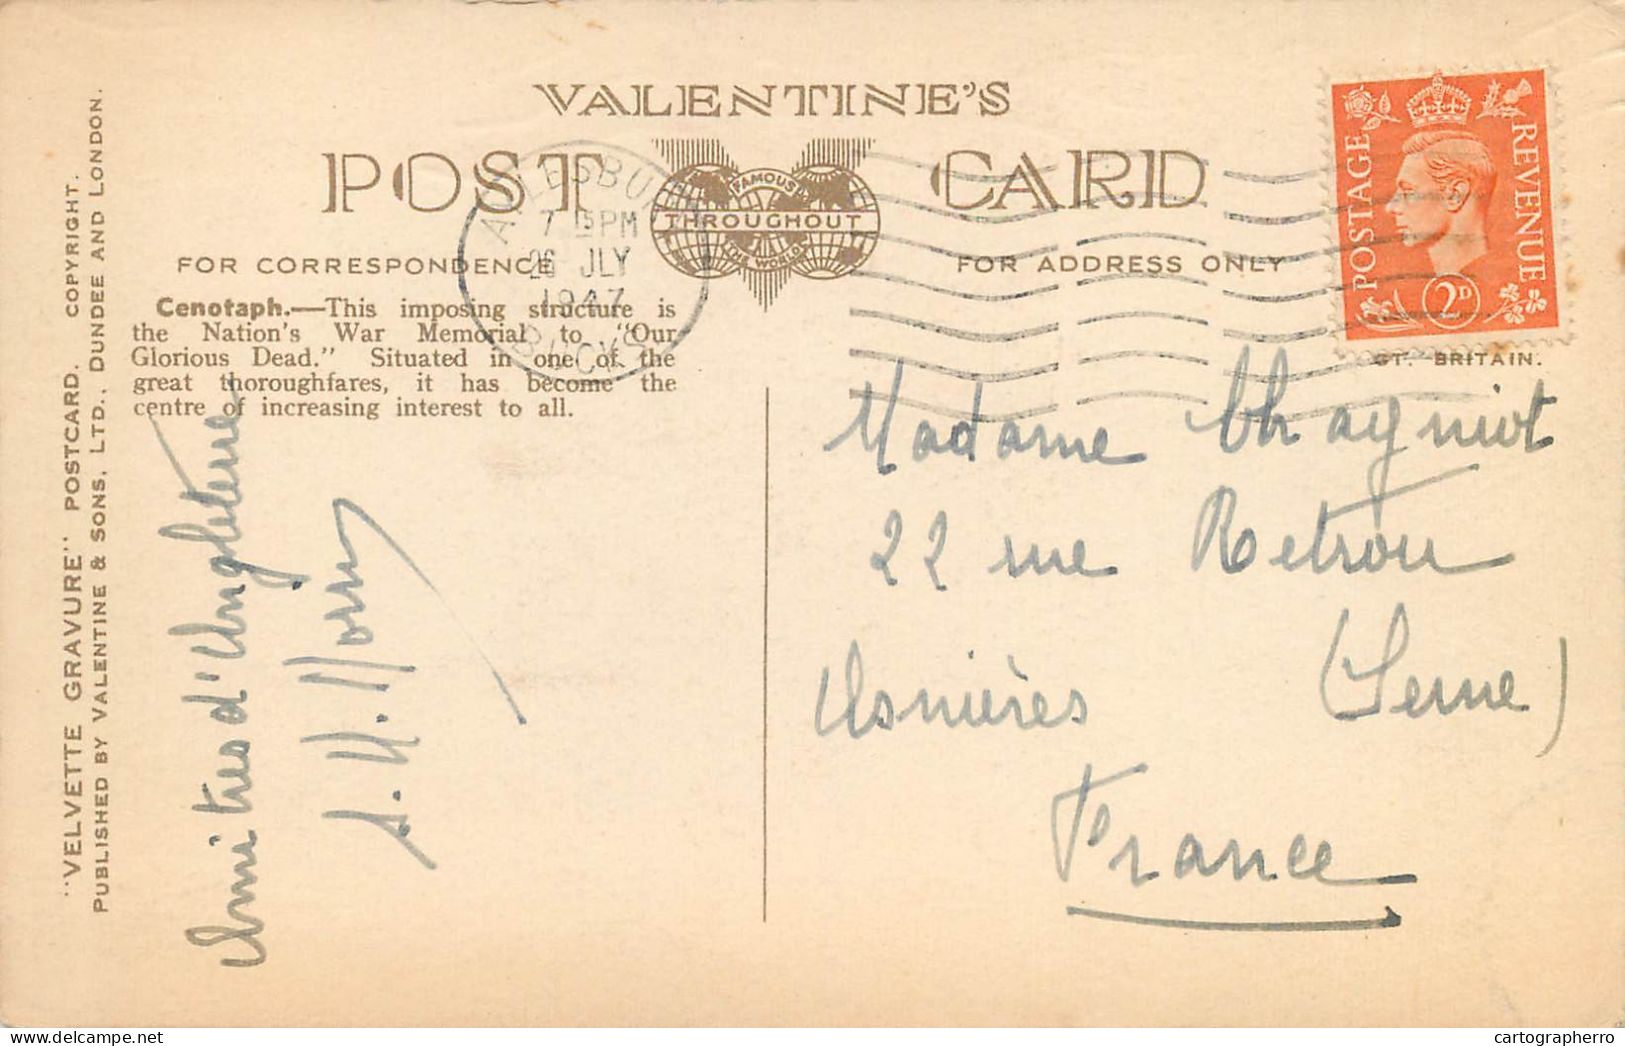 VALENTINE'S
POST CARD
FAMOUS
THROUGHOUT
THE WORLD
FOR CORRESPONDENCE
FOR ADDRESS ONLY
Cenotaph.—This imposing structure is
the Nation's War Memorial to "Our
Glorious Dead." Situated in one of the
great thoroughfares, it has become the
centre of increasing interest to all.
AYLESBURY
7 15 PM
26 JLY
1947
BUCKS
POSTAGE
REVENUE
2D
GT. BRITAIN.
"VELVETTE GRAVURE" POSTCARD. COPYRIGHT.
PUBLISHED BY VALENTINE & SONS, LTD., DUNDEE AND LONDON.
Amitiés d'Angleterre
Madame Chagniot
22 rue Retrou
Asnières (Seine)
France
cartographerro
delcampe.net